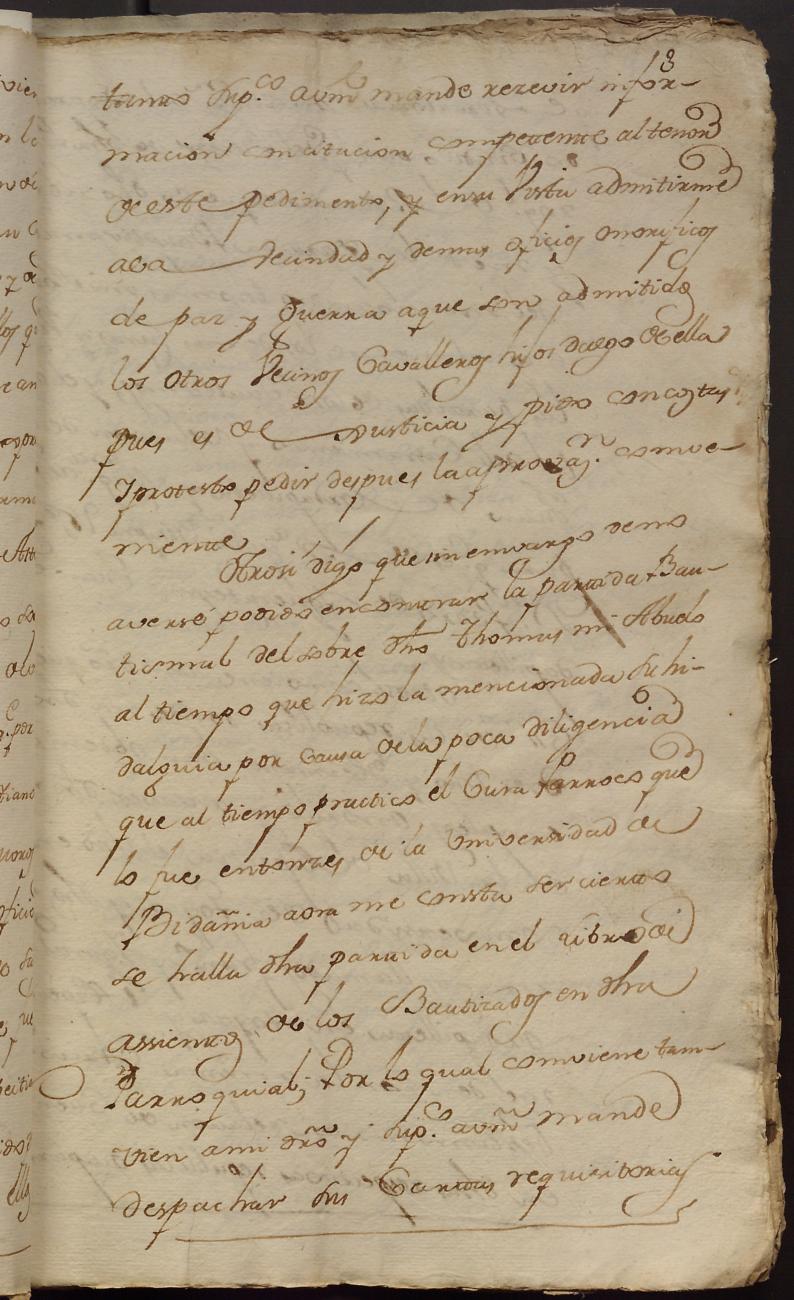 3
tanto sup.co avm mande rezevir infor-
macion con citacion competente al tenor
de este pedimento, y en su Vista admitirme
a la Vecindad y demas oficios onorificos
de paz y Guerra a que son admitidos
los otros Vecinos Cavalleros hijos dalgo de ella
pues es de Justicia y pido con costas
Y protesto pedir despues la aprovaz.n combe-
niente
Otrosi digo que sin embargo de no
averse podido encontrar la partida Bau-
tismal del sobre dho Thomas mi Abuelo
al tiempo que hizo la mencionada su hi-
dalguia por causa de la poca diligencia
que al tiempo practico el Cura Parroco que
lo fue entonzes de la Universidad de
Bidañia aora me consta ser cierto
se halla dha partida en el libro de
assientos de los Bautizados en dha
Parroquial; Por lo qual combiene tam-
vien a mi dro y sup.co avm mande
despachar sus Cartas requisitorias